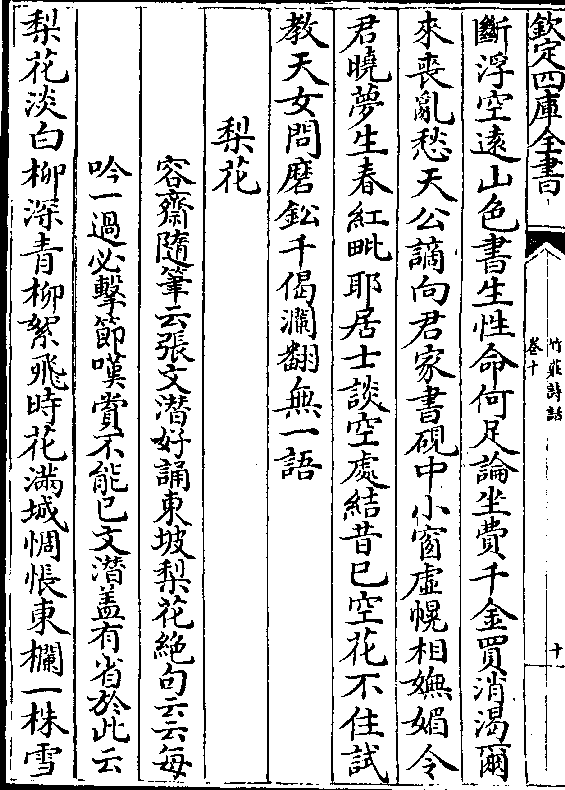 欽定四庫全書
竹莊詩話
卷十
十
斷浮空遠山色書生性命何足論坐費千金買消渴爾
來喪亂愁天公謫向君家書硯中小窗虛幌相嫵媚令
君曉夢生春紅毗耶居士談空處結昔已空花不住試
教天女問磨鈆千偈瀾翻無一語
梨花
容齋隨筆云張文潛好誦東坡梨花絶句云云每
吟一過必擊節嘆賞不能已文潛盖有省於此云
梨花淡白柳深青柳絮飛時花滿城惆悵東欄一株雪